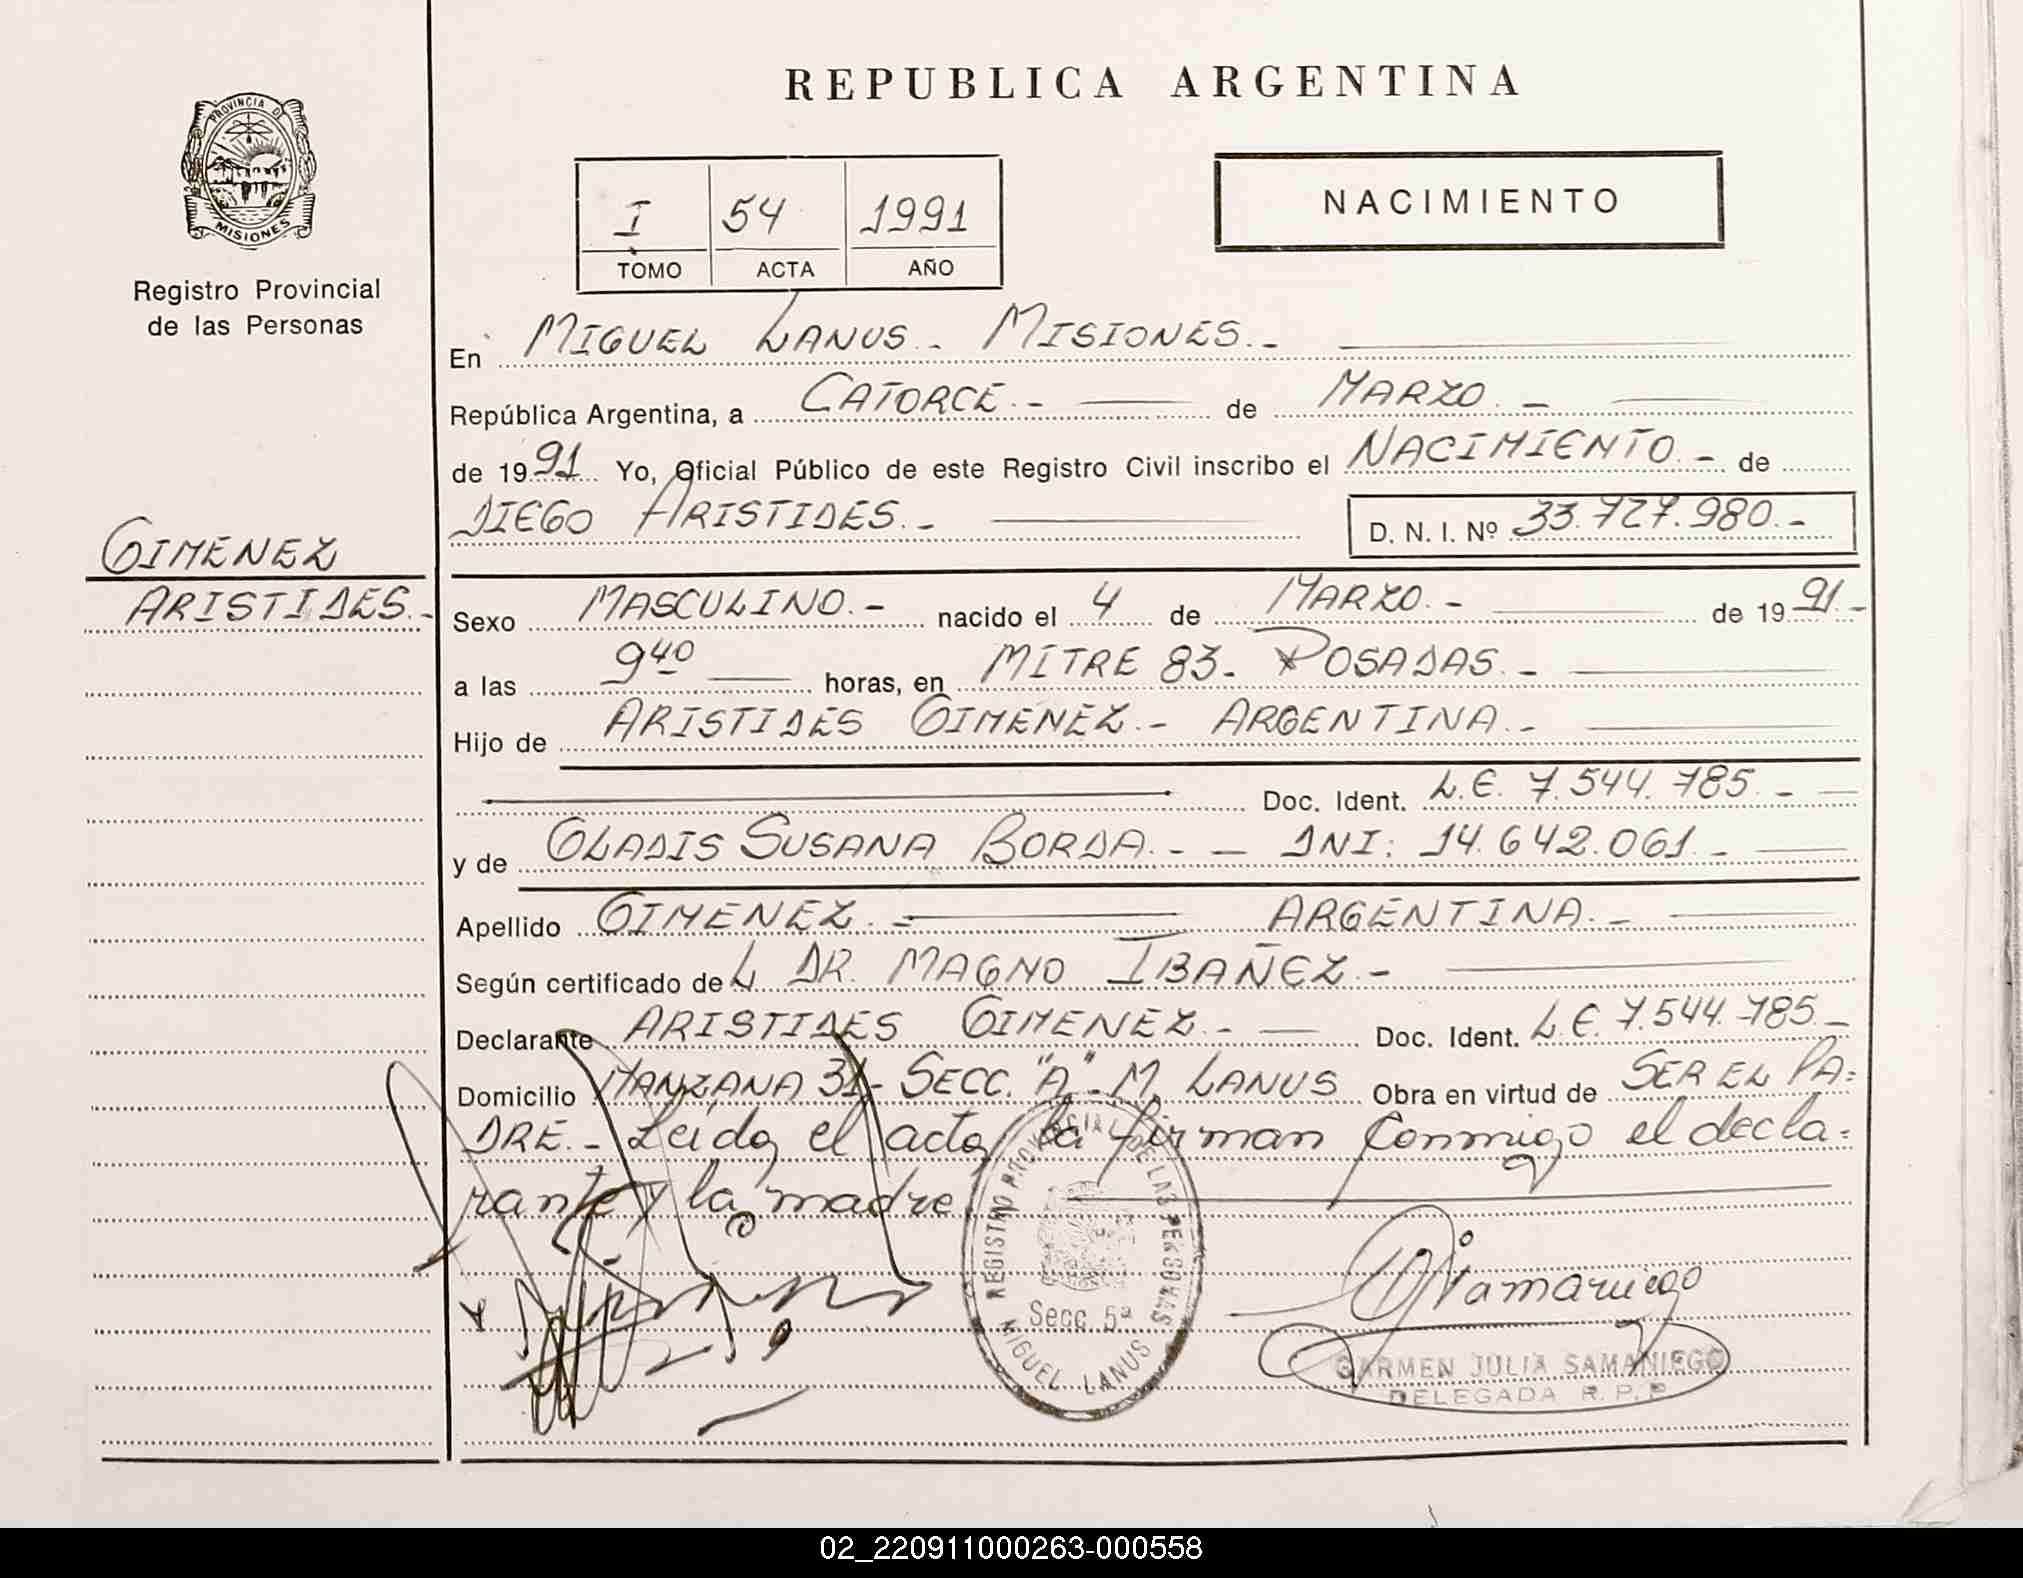 REPUBLICA ARGENTINA
PROVINCIA DE MISIONES
Registro Provincial
de las Personas
I 54 1991
TOMO ACTA AÑO
NACIMIENTO
En MIGUEL LANUS.- MISIONES.-
República Argentina, a CATORCE.- de MARZO.-
de 1991 Yo, Oficial Público de este Registro Civil inscribo el NACIMIENTO.- de
DIEGO ARISTIDES.- D. N. I. Nº 33.727.980.-
GIMENEZ
ARISTIDES.-
Sexo MASCULINO.- nacido el 4 de MARZO.- de 1991.-
a las 9 40 horas, en MITRE 83.- POSADAS.-
Hijo de ARISTIDES GIMENEZ.- ARGENTINA.-
Doc. Ident. L.E. 7.544.785.-
y de GLADIS SUSANA BORDA.- - DNI: 14.642.061.-
Apellido GIMENEZ.- ARGENTINA.-
Según certificado de L DR. MAGNO IBAÑEZ.-
Declarante ARISTIDES GIMENEZ.- Doc. Ident. L.E. 7.544.785.-
Domicilio MANZANA 31- SECC. "A"- M. LANUS Obra en virtud de SER EL PA=
DRE.- Leída el acta, la firman conmigo el decla=
rante y la madre.
REGISTRO PROVINCIAL DE LAS PERSONAS
Secc. 5ª
MIGUEL LANUS
CARMEN JULIA SAMANIEGO
DELEGADA R. P. P.
02_220911000263-000558